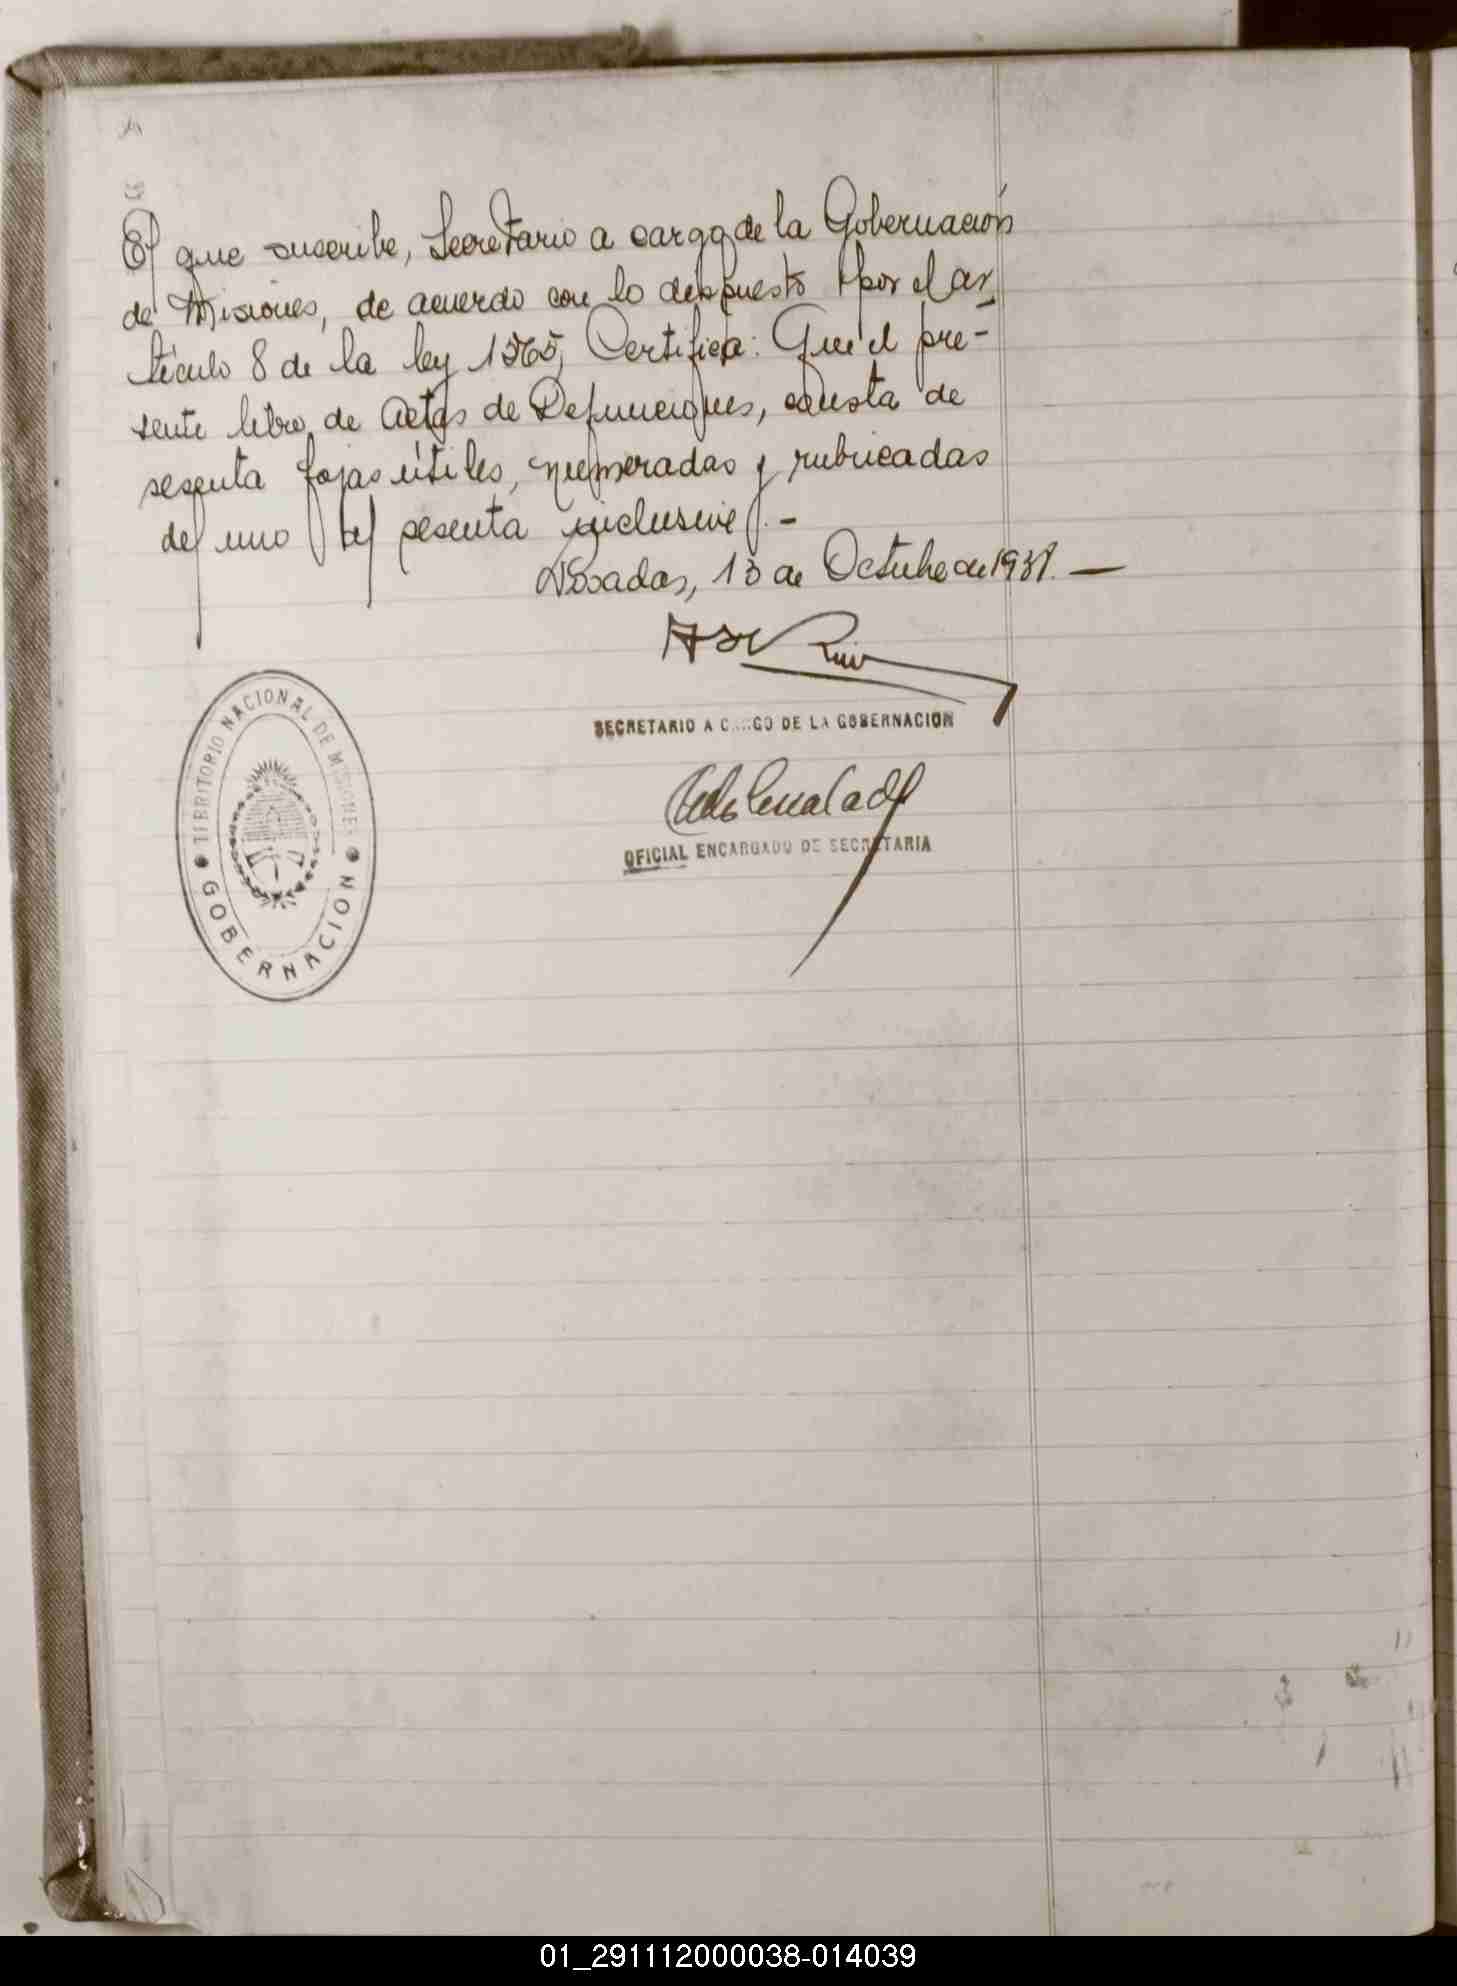 El que suscribe, Secretario a cargo de la Gobernación
de Misiones, de acuerdo con lo dispuesto por el ar
tículo 8 de la ley 1565, Certifica: Que el pre-
sente libro de Actas de Defunciones, consta de
sesenta fojas útiles, numeradas y rubricadas
del uno al sesenta inclusive.-
Posadas, 13 de Octubre de 1931.—
Ruiz
SECRETARIO A CARGO DE LA GOBERNACION
OFICIAL ENCARGADO DE SECRETARIA
TERRITORIO NACIONAL DE MISIONES
GOBERNACION
01_291112000038-014039